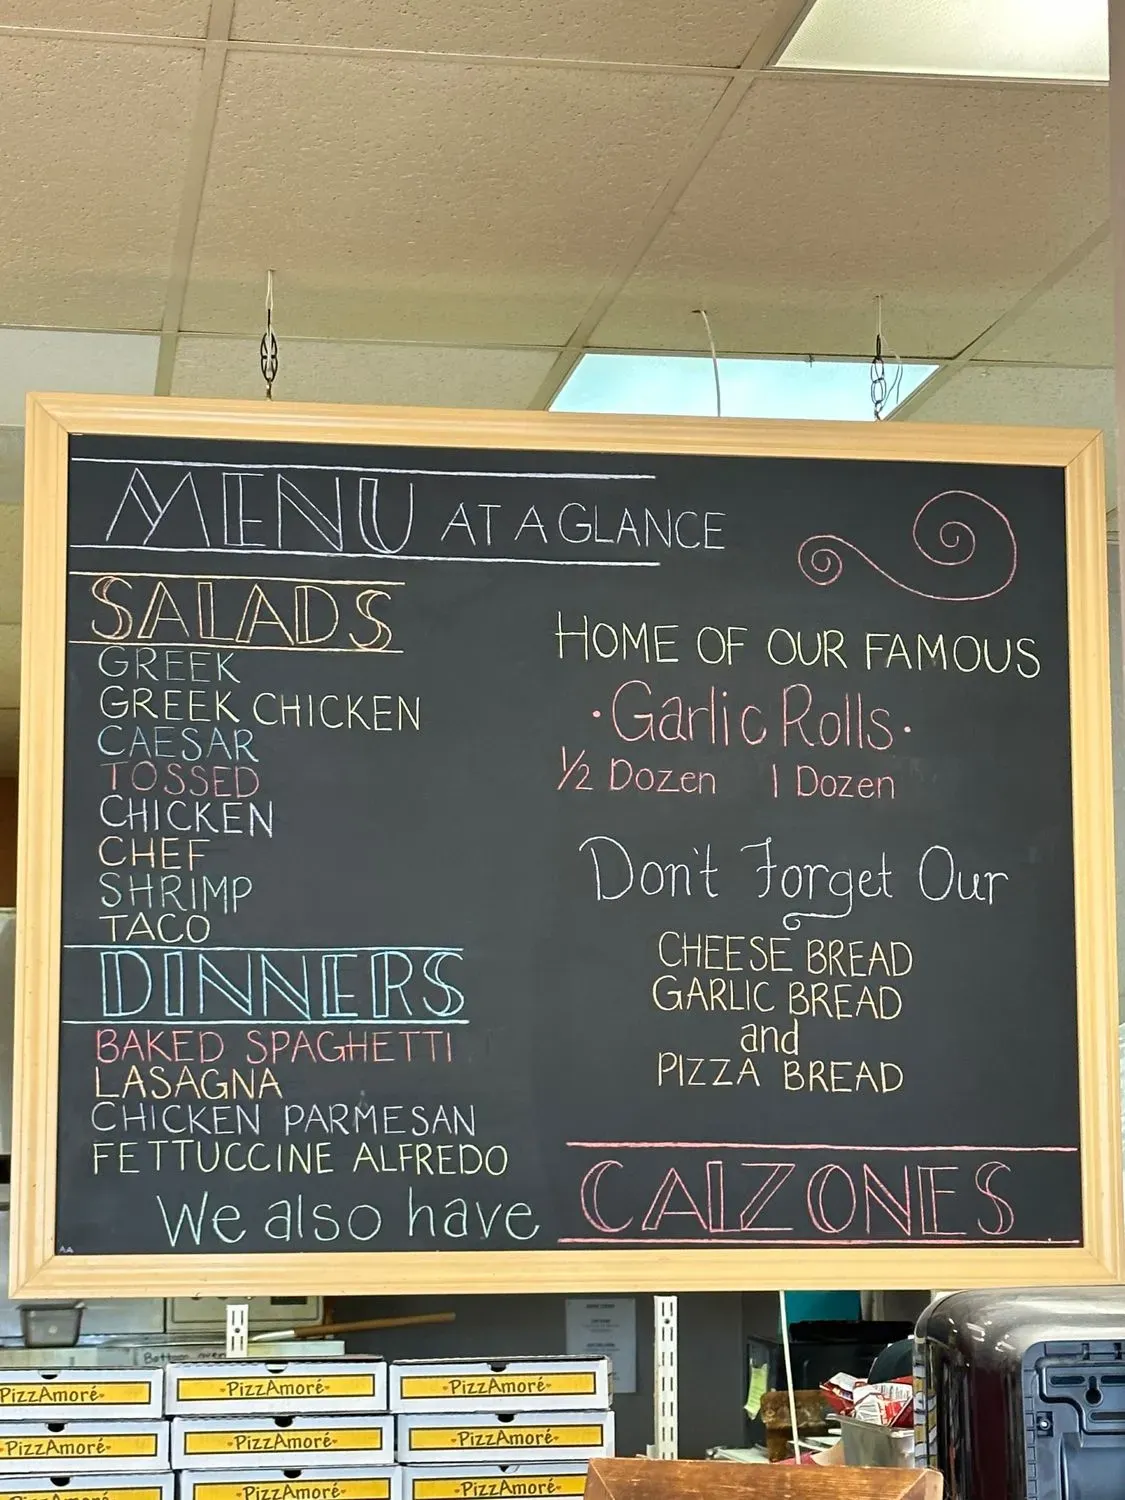 MENU AT A GLANCE
SALADS
GREEK
GREEK CHICKEN
CAESAR
TOSSED
CHICKEN
CHEF
SHRIMP
TACO
DINNERS
BAKED SPAGHETTI
LASAGNA
CHICKEN PARMESAN
FETTUCCINE ALFREDO
We also have CALZONES
HOME OF OUR FAMOUS
·Garlic Rolls·
1/2 Dozen 1 Dozen
Don't Forget Our
CHEESE BREAD
GARLIC BREAD
and
PIZZA BREAD
Bottom oven
PizzAmoré
PizzAmoré
PizzAmoré
PizzAmoré
PizzAmoré
PizzAmoré
PizzAmoré
PizzAmoré